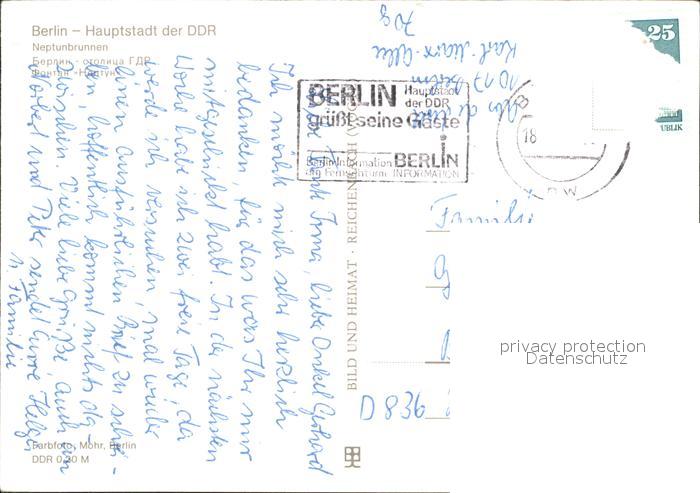 Berlin – Hauptstadt der DDR
Neptunbrunnen
Берлин - столица ГДР
Фонтан «Нептун»
Liebe Tante Irma, liebe Onkel Gerhard
Ich möchte mich sehr herzlich
bedanken, für das was Ihr mir
mitgeschickt habt. In der nächsten
Woche habe ich zwei freie Tage, da
werde ich versuchen mal wieder
einen ausführlichen Brief zu schrei-
ben, hoffentlich kommt nichts da-
zwischen. Viele liebe Grüße, auch an
Norbert und sendet Eure Helga
u. Familie
Farbfoto: Mohr, Berlin
DDR 0,20 M
BILD UND HEIMAT · REICHENBACH (V
Karl-Marx-Allee
1017 Berlin
70g
BERLIN Hauptstadt
der DDR
grüßt seine Gäste
Berlin-Information
am Fernsehturm
BERLIN
INFORMATION
18
25
UBLIK
Familie
D 836
privacy protection
Datenschutz